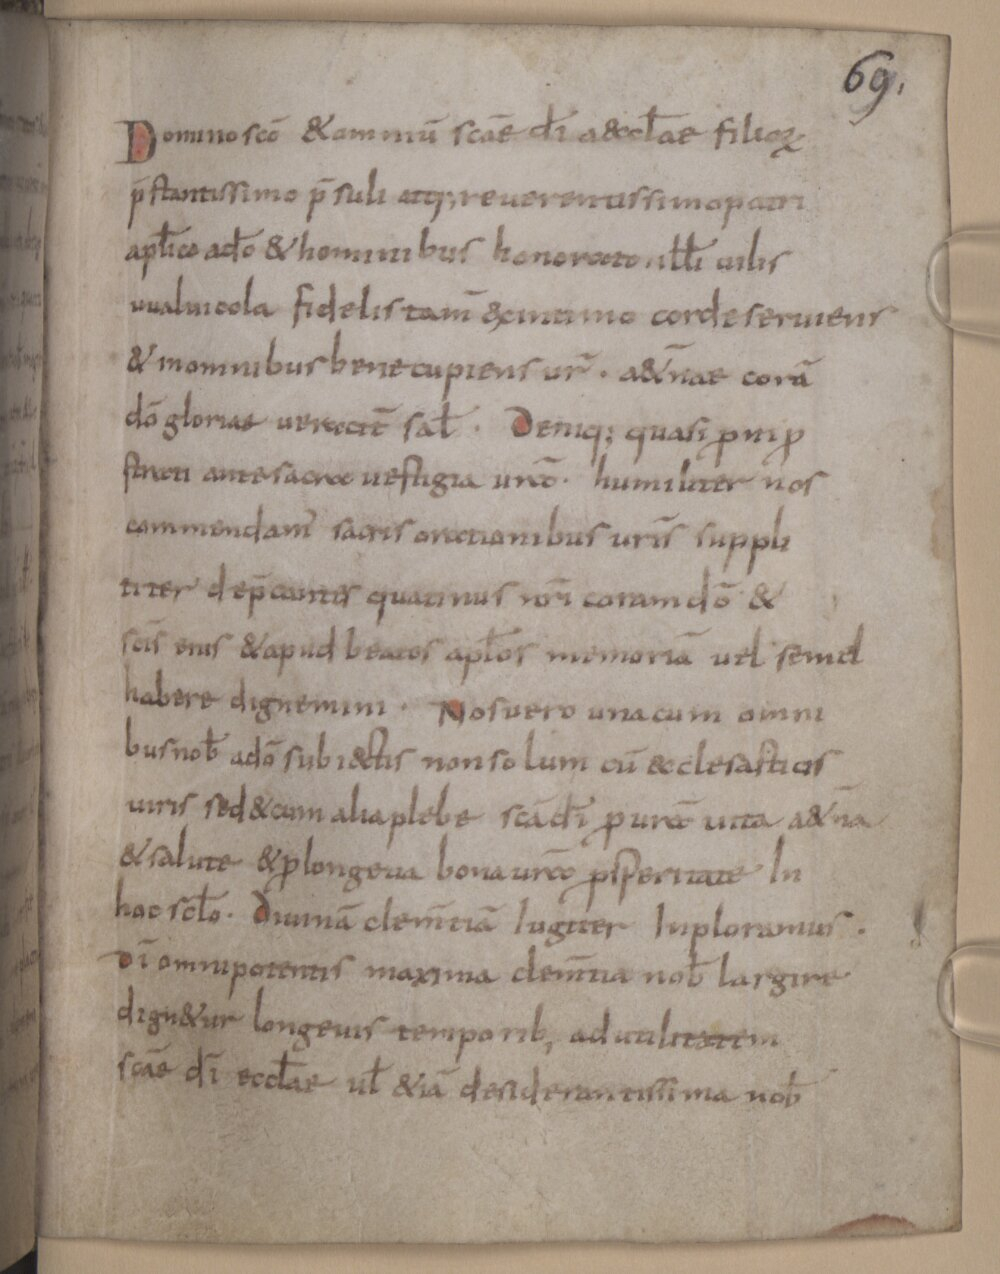 69.
Domino scō & omniū scāe dī aecclae filioꝝ
p̄stantissimo p̄suli atq; reverentissimo patri
aplico a dō & hominibus honorato ill uilis
uualuicola fidelis tam̄ & intimo corde seruiens
& in omnibus bene cupiens ur̄ . a&nae corā
dō gloriae uenerit sal . Deniq; quasi ꝓni ꝓ
strati ante sacra uestigia urā . humiliter nos
commendam̄ sacris orationibus uris suppli
citer dep̄cantes quatinus nri coram dō &
scīs eius & apud beatos aplos memoriā uel semel
habere dignemini . Nos uero una cum omni
bus nob a dō subiectis non solum cū ecclesasticis
uiris sed & cum alia plebe scā dī ꝓ urā uita a&na
& salute & ꝓ longeua bona urā ꝓsperitate In
hoc sclo . Diuinā clem̄tiā Iugiter Inploramus .
Dī omnipotentis maxima clem̄tia nob largire
dign&ur longeuis temporib; ad utilitatem
scāe dī ecclae ul &iā desiderantissima nob